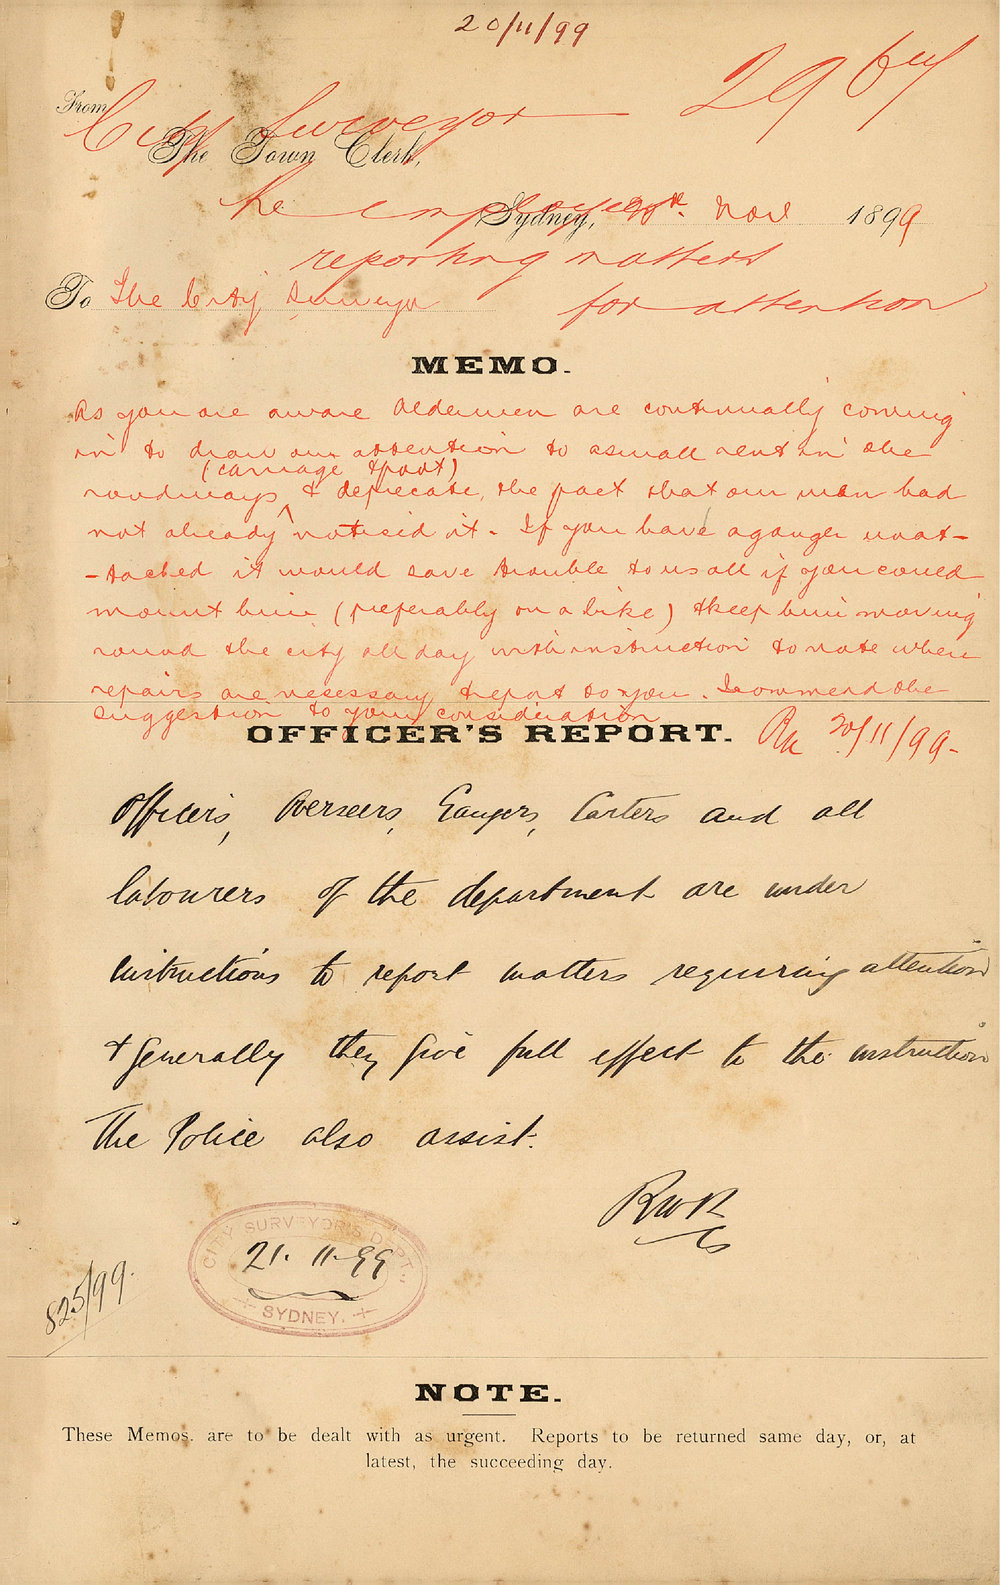 20/11/99
2967
From
City Surveyor
The Town Clerk,
Re employees
Sydney, 20th Nov 1899
reporting matters
To The City Surveyor
for attention
MEMO.
As you are aware Aldermen are continually coming
in to draw our attention to a small rent in the
(carriage & foot)
roadways & deprecate, the fact that our men had
not already noticed it. If you have a ganger unat-
-tached it would save trouble to us all if you could
mount him (preferably on a bike) & keep him moving
round the city all day with instruction to note when
repairs are necessary & report to you. I commend the
suggestion to your consideration
20/11/99.
OFFICER'S REPORT.
Officers, Overseers, Gangers, Carters and all
labourers of the department are under
instructions to report matters requiring attention
& generally they give full effect to the instruction
The Police also assist.
RWR
CITY SURVEYOR'S DEPT.
21. 11. 99
SYDNEY.
825/99.
NOTE.
These Memos. are to be dealt with as urgent. Reports to be returned same day, or, at
latest, the succeeding day.